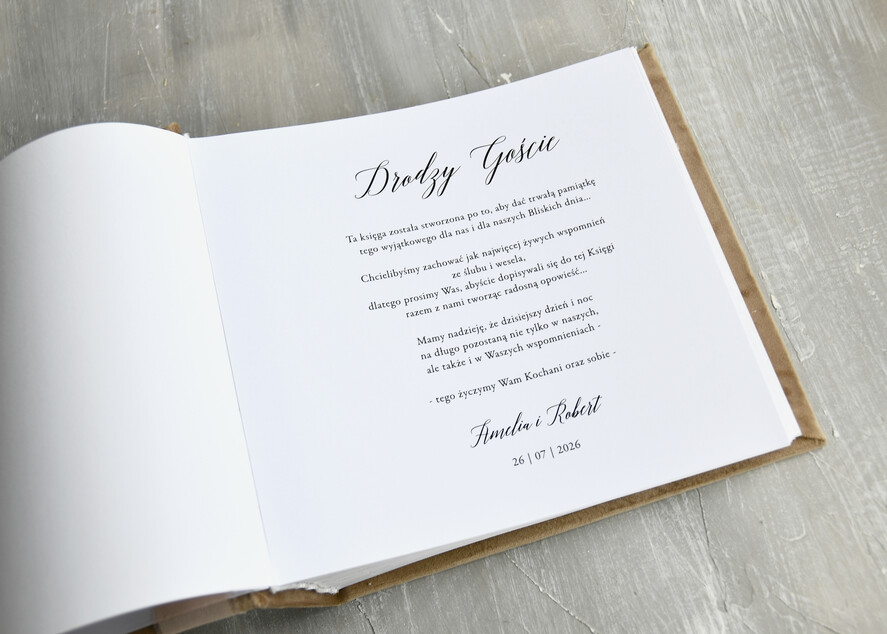 Drodzy Goście
Ta księga została stworzona po to, aby dać trwałą pamiątkę
tego wyjątkowego dla nas i dla naszych Bliskich dnia...
Chcielibyśmy zachować jak najwięcej żywych wspomnień
ze ślubu i wesela,
dlatego prosimy Was, abyście dopisywali się do tej Księgi
razem z nami tworząc radosną opowieść...
Mamy nadzieję, że dzisiejszy dzień i noc
na długo pozostaną nie tylko w naszych,
ale także i w Waszych wspomnieniach -
- tego życzymy Wam Kochani oraz sobie -
Amelia i Robert
26 | 07 | 2026